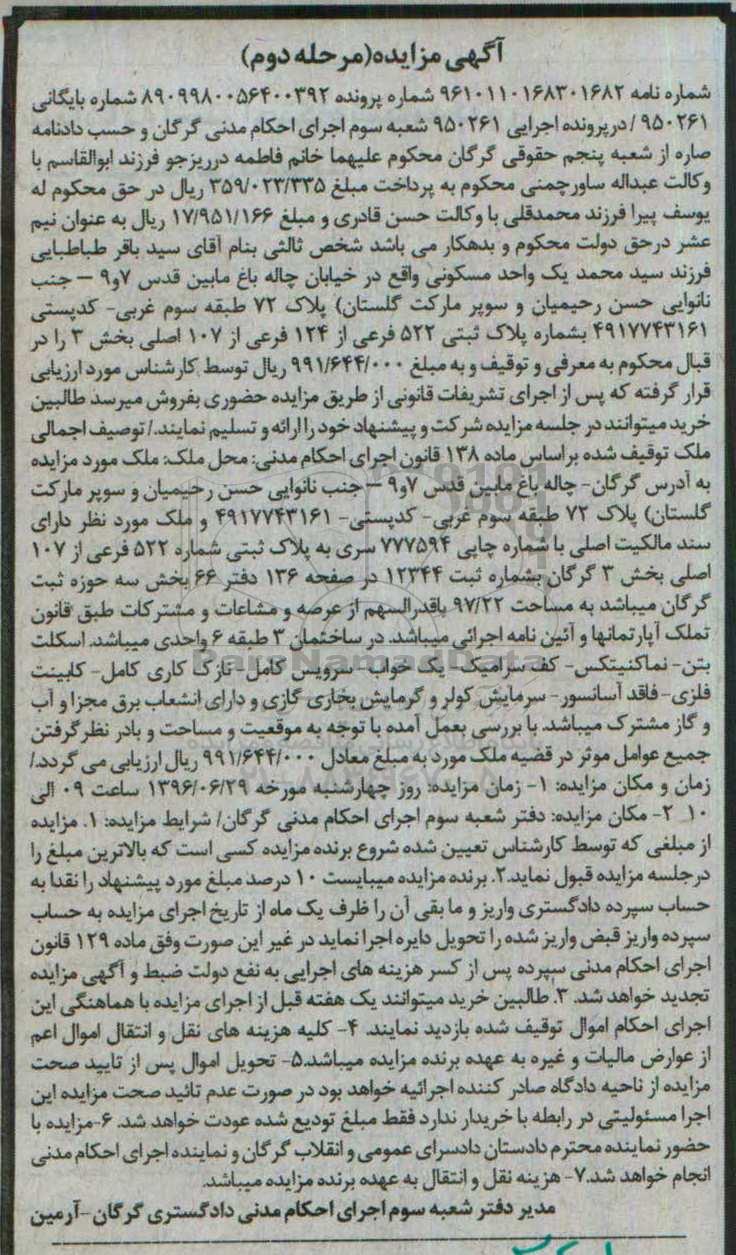 آگهی مزایده(مرحله دوم)
شماره نامه ۹۶۱۰۱۱۰۱۶۸۳۰۱۶۸۲ شماره پرونده ۸۹۰۹۹۸۰۰۵۶۴۰۰۳۹۲ شماره بایگانی
۹۵۰۲۶۱ / درپرونده اجرایی ۹۵۰۲۶۱ شعبه سوم اجرای احکام مدنی گرگان و حسب دادنامه
صاره از شعبه پنجم حقوقی گرگان محکوم علیهما خانم فاطمه درریزجو فرزند ابوالقاسم با
وکالت عبداله ساورچمنی محکوم به پرداخت مبلغ ۳۵۹/۰۲۳/۳۳۵ ریال در حق محکوم له
یوسف پیرا فرزند محمدقلی با وکالت حسن قادری و مبلغ ۱۷/۹۵۱/۱۶۶ ریال به عنوان نیم
عشر درحق دولت محکوم و بدهکار می باشد شخص ثالثی بنام آقای سید باقر طباطبایی
فرزند سید محمد یک واحد مسکونی واقع در خیابان چاله باغ مابین قدس ۷و۹ – جنب
نانوایی حسن رحیمیان و سوپر مارکت گلستان) پلاک ۷۲ طبقه سوم غربی- کدپستی
۴۹۱۷۷۴۳۱۶۱ بشماره پلاک ثبتی ۵۲۲ فرعی از ۱۲۴ فرعی از ۱۰۷ اصلی بخش ۳ را در
قبال محکوم به معرفی و توقیف و به مبلغ ۹۹۱/۶۴۴/۰۰۰ ریال توسط کارشناس مورد ارزیابی
قرار گرفته که پس از اجرای تشریفات قانونی از طریق مزایده حضوری بفروش میرسد طالبین
خرید میتوانند در جلسه مزایده شرکت و پیشنهاد خود را ارائه و تسلیم نمایند./ توصیف اجمالی
ملک توقیف شده براساس ماده ۱۳۸ قانون اجرای احکام مدنی: محل ملک: ملک مورد مزایده
به آدرس گرگان- چاله باغ مابین قدس ۷و۹ – جنب نانوایی حسن رحیمیان و سوپر مارکت
گلستان) پلاک ۷۲ طبقه سوم غربی- کدپستی- ۴۹۱۷۷۴۳۱۶۱ و ملک مورد نظر دارای
سند مالکیت اصلی با شماره چاپی ۷۷۷۵۹۴ سری به پلاک ثبتی شماره ۵۲۲ فرعی از ۱۰۷
اصلی بخش ۳ گرگان بشماره ثبت ۱۲۳۴۴ در صفحه ۱۳۶ دفتر ۶۶ بخش سه حوزه ثبت
گرگان میباشد به مساحت ۹۷/۲۲ باقدرالسهم از عرصه و مشاعات و مشترکات طبق قانون
تملک آپارتمانها و آئین نامه اجرائی میباشد. در ساختمان ۳ طبقه ۶ واحدی میباشد. اسکلت
بتن- نماکنیتکس- کف سرامیک- یک خواب- سرویس کامل- نازک کاری کامل- کابینت
فلزی- فاقد آسانسور- سرمایش کولر و گرمایش بخاری گازی و دارای انشعاب برق مجزا و آب
و گاز مشترک میباشد. با بررسی بعمل آمده با توجه به موقعیت و مساحت و بادر نظرگرفتن
جمیع عوامل موثر در قضیه ملک مورد به مبلغ معادل ۹۹۱/۶۴۴/۰۰۰ ریال ارزیابی می گردد./
زمان و مکان مزایده: ۱- زمان مزایده: روز چهارشنبه مورخه ۱۳۹۶/۰۶/۲۹ ساعت ۰۹ الی
۱۰ ۲- مکان مزایده: دفتر شعبه سوم اجرای احکام مدنی گرگان/ شرایط مزایده: ۱. مزایده
از مبلغی که توسط کارشناس تعیین شده شروع برنده مزایده کسی است که بالاترین مبلغ را
درجلسه مزایده قبول نماید.۲. برنده مزایده میبایست ۱۰ درصد مبلغ مورد پیشنهاد را نقدا به
حساب سپرده دادگستری واریز و ما بقی آن را ظرف یک ماه از تاریخ اجرای مزایده به حساب
سپرده واریز قبض واریز شده را تحویل دایره اجرا نماید در غیر این صورت وفق ماده ۱۲۹ قانون
اجرای احکام مدنی سپرده پس از کسر هزینه های اجرایی به نفع دولت ضبط و آگهی مزایده
تجدید خواهد شد. ۳. طالبین خرید میتوانند یک هفته قبل از اجرای مزایده با هماهنگی این
اجرای احکام اموال توقیف شده بازدید نمایند. ۴- کلیه هزینه های نقل و انتقال اموال اعم
از عوارض مالیات و غیره به عهده برنده مزایده میباشد.۵- تحویل اموال پس از تایید صحت
مزایده از ناحیه دادگاه صادر کننده اجرائیه خواهد بود در صورت عدم تائید صحت مزایده این
اجرا مسئولیتی در رابطه با خریدار ندارد فقط مبلغ تودیع شده عودت خواهد شد. ۶-مزایده با
حضور نماینده محترم دادستان دادسرای عمومی و انقلاب گرگان و نماینده اجرای احکام مدنی
انجام خواهد شد.۷- هزینه نقل و انتقال به عهده برنده مزایده میباشد.
مدیر دفتر شعبه سوم اجرای احکام مدنی دادگستری گرگان-آرمین